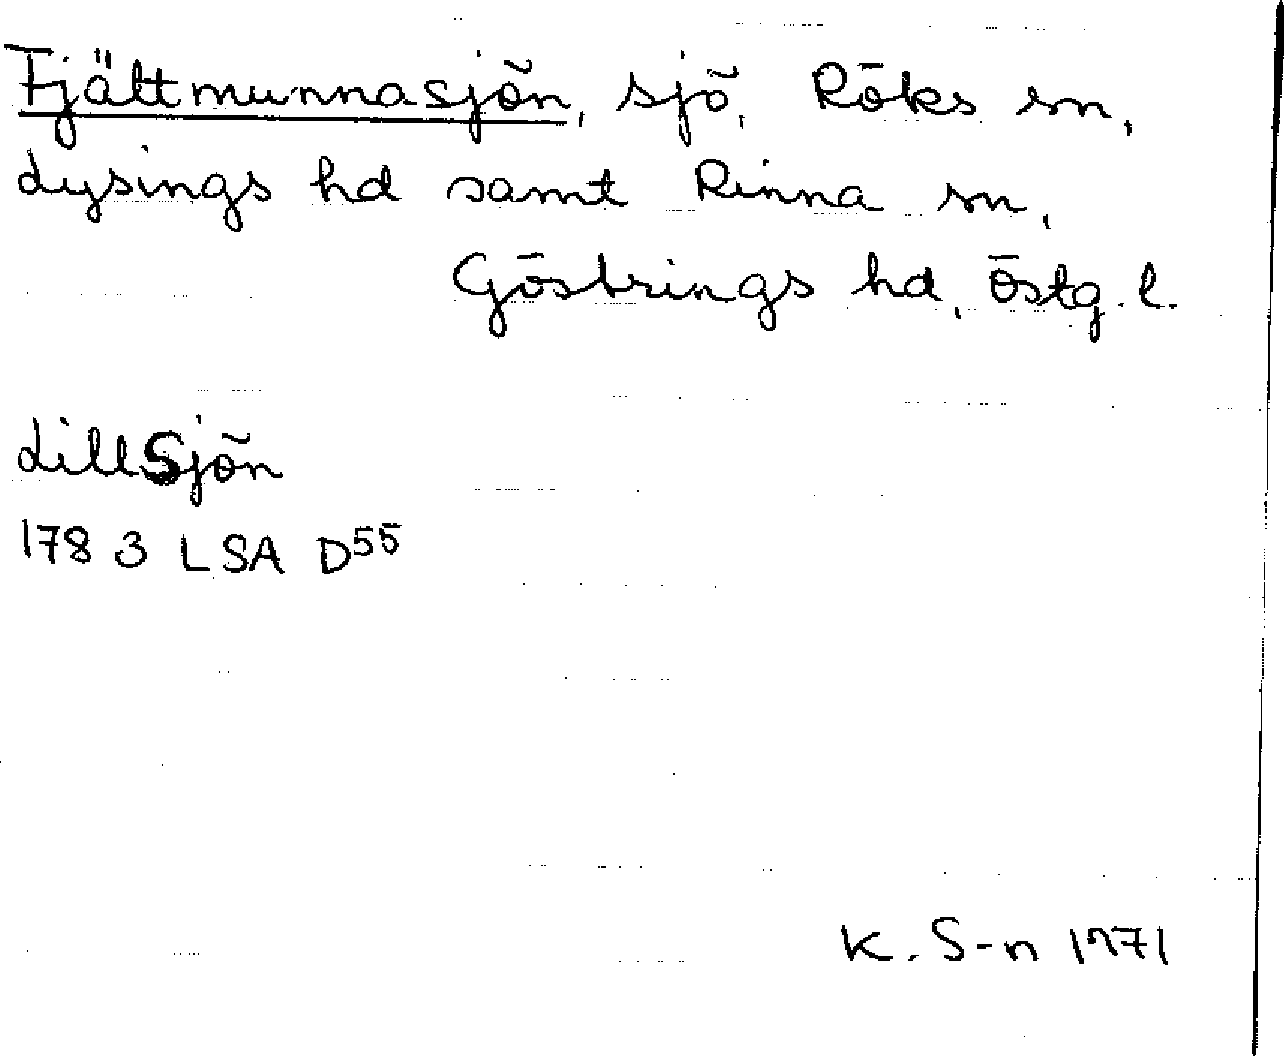 Fjältmunnasjön, sjö, Röks sn,
Lysings hd samt Rinna sn,
Göstrings hd, Östg. l.
LillSjön
1783 LSA D55
K. S-n 1971